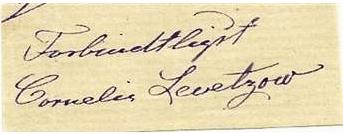 Forbindtligst
Cornelia Levetzow